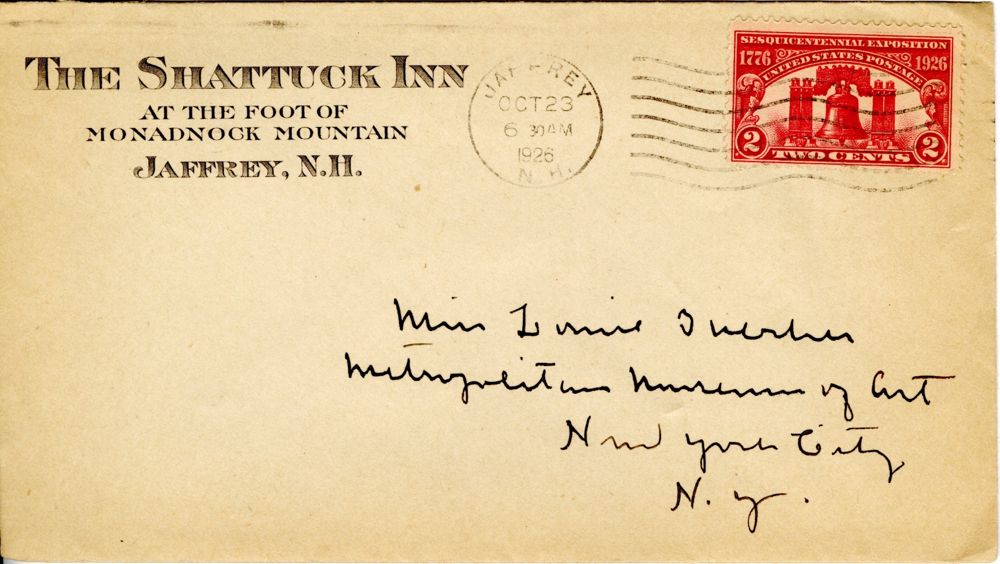 THE SHATTUCK INN
AT THE FOOT OF
MONADNOCK MOUNTAIN
JAFFREY, N.H.
JAFFREY
OCT 23
6 30 AM
1926
N. H.
SESQUICENTENNIAL EXPOSITION
1776 1926
UNITED STATES POSTAGE
2 2
TWO CENTS
Miss Louise
Metropolitan Museum of Art
New York City
N. Y.